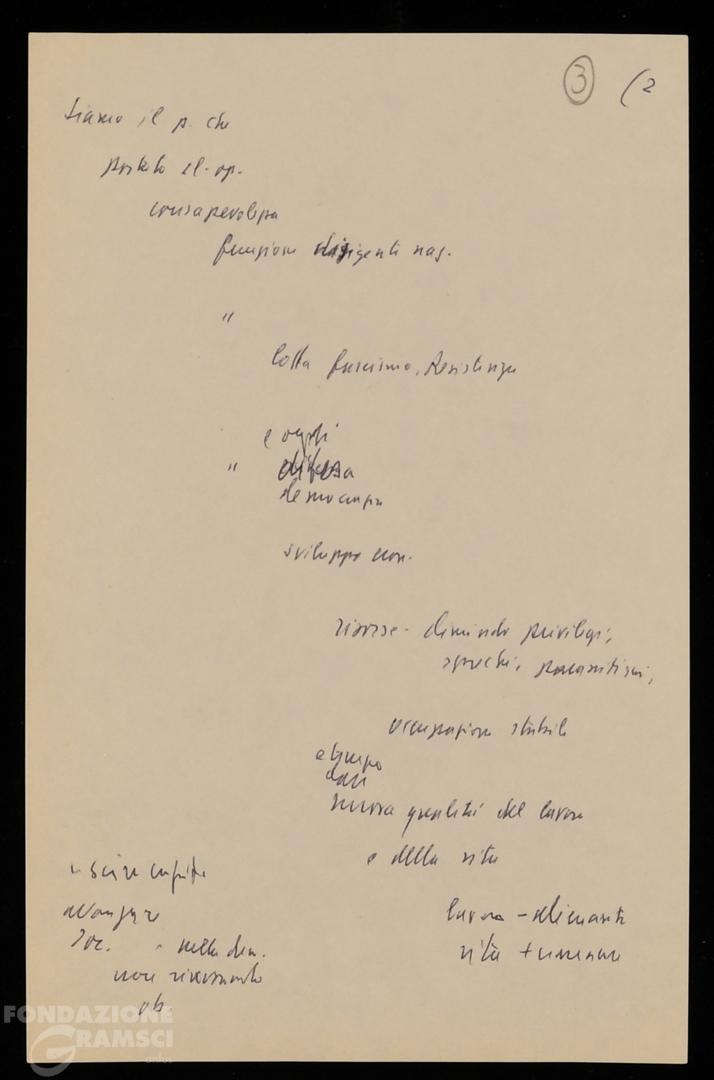 3 (2
siamo il p. che
portato cl. op.
consapevolezza
funzione dirigente naz.
"
lotta fascismo, Resistenza
e oggi
" difesa
democrazia
sviluppo econ.
risorse - eliminando privilegi,
sprechi, parassitismi,
occupazione stabile
e
nuova qualità del lavoro
e della vita
uscire crisi
avanzare
soc. e nella dem.
non rinviando
lavoro - alienante
vita + umana
FONDAZIONE
GRAMSCI
onlus